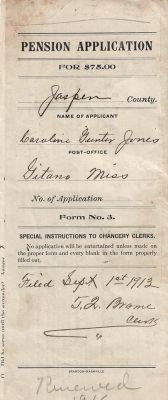 PENSION APPLICATION
FOR $75.00
Jasper County.
NAME OF APPLICANT
Caroline Gunter Jones
POST-OFFICE
Gitano Miss
No. of Application
Form No. 3.
SPECIAL INSTRUCTIONS TO CHANCERY CLERKS.
No application will be entertained unless made on
the proper form and every blank in the form properly
filled out.
Filed Sept 1st 1913
T. Q. Brame
Clerk
BRANDON-NASHVILLE
Renewed
1916